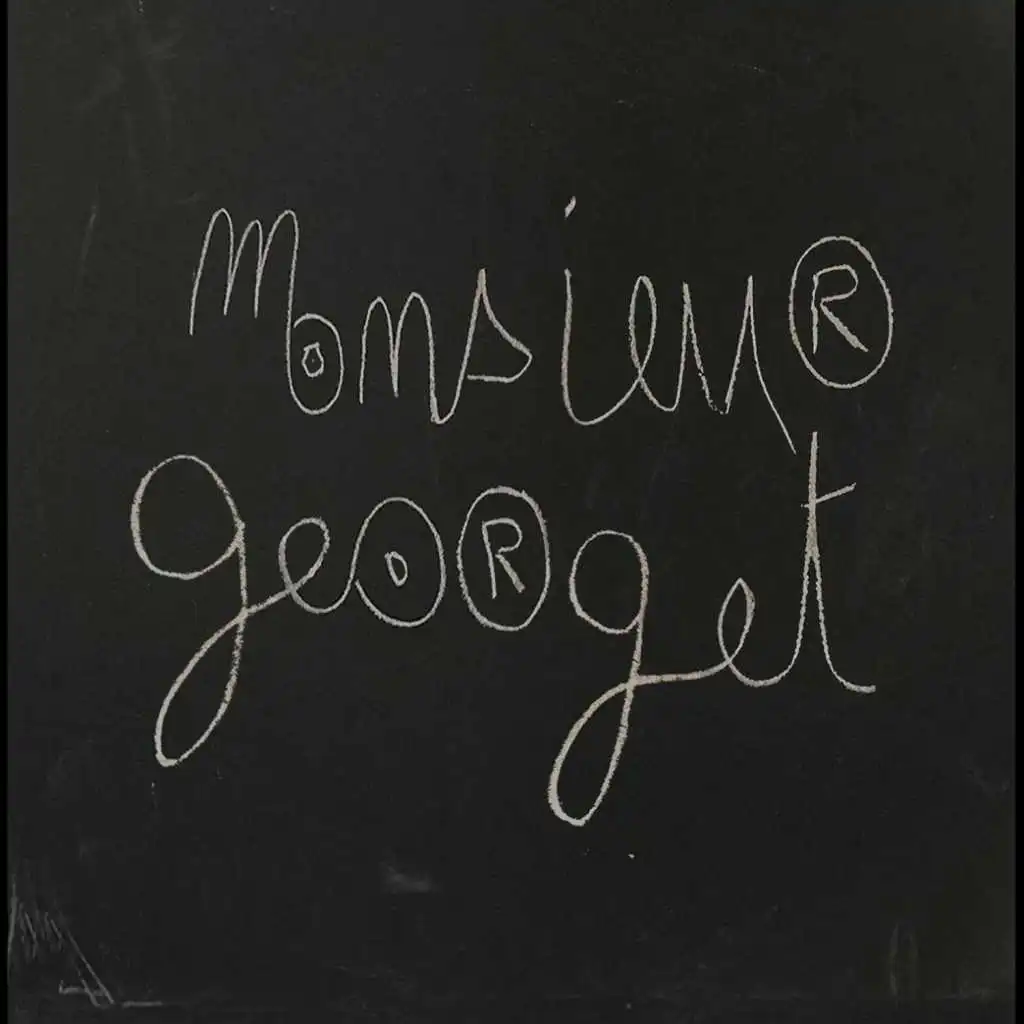 MonsieuR
geoRget